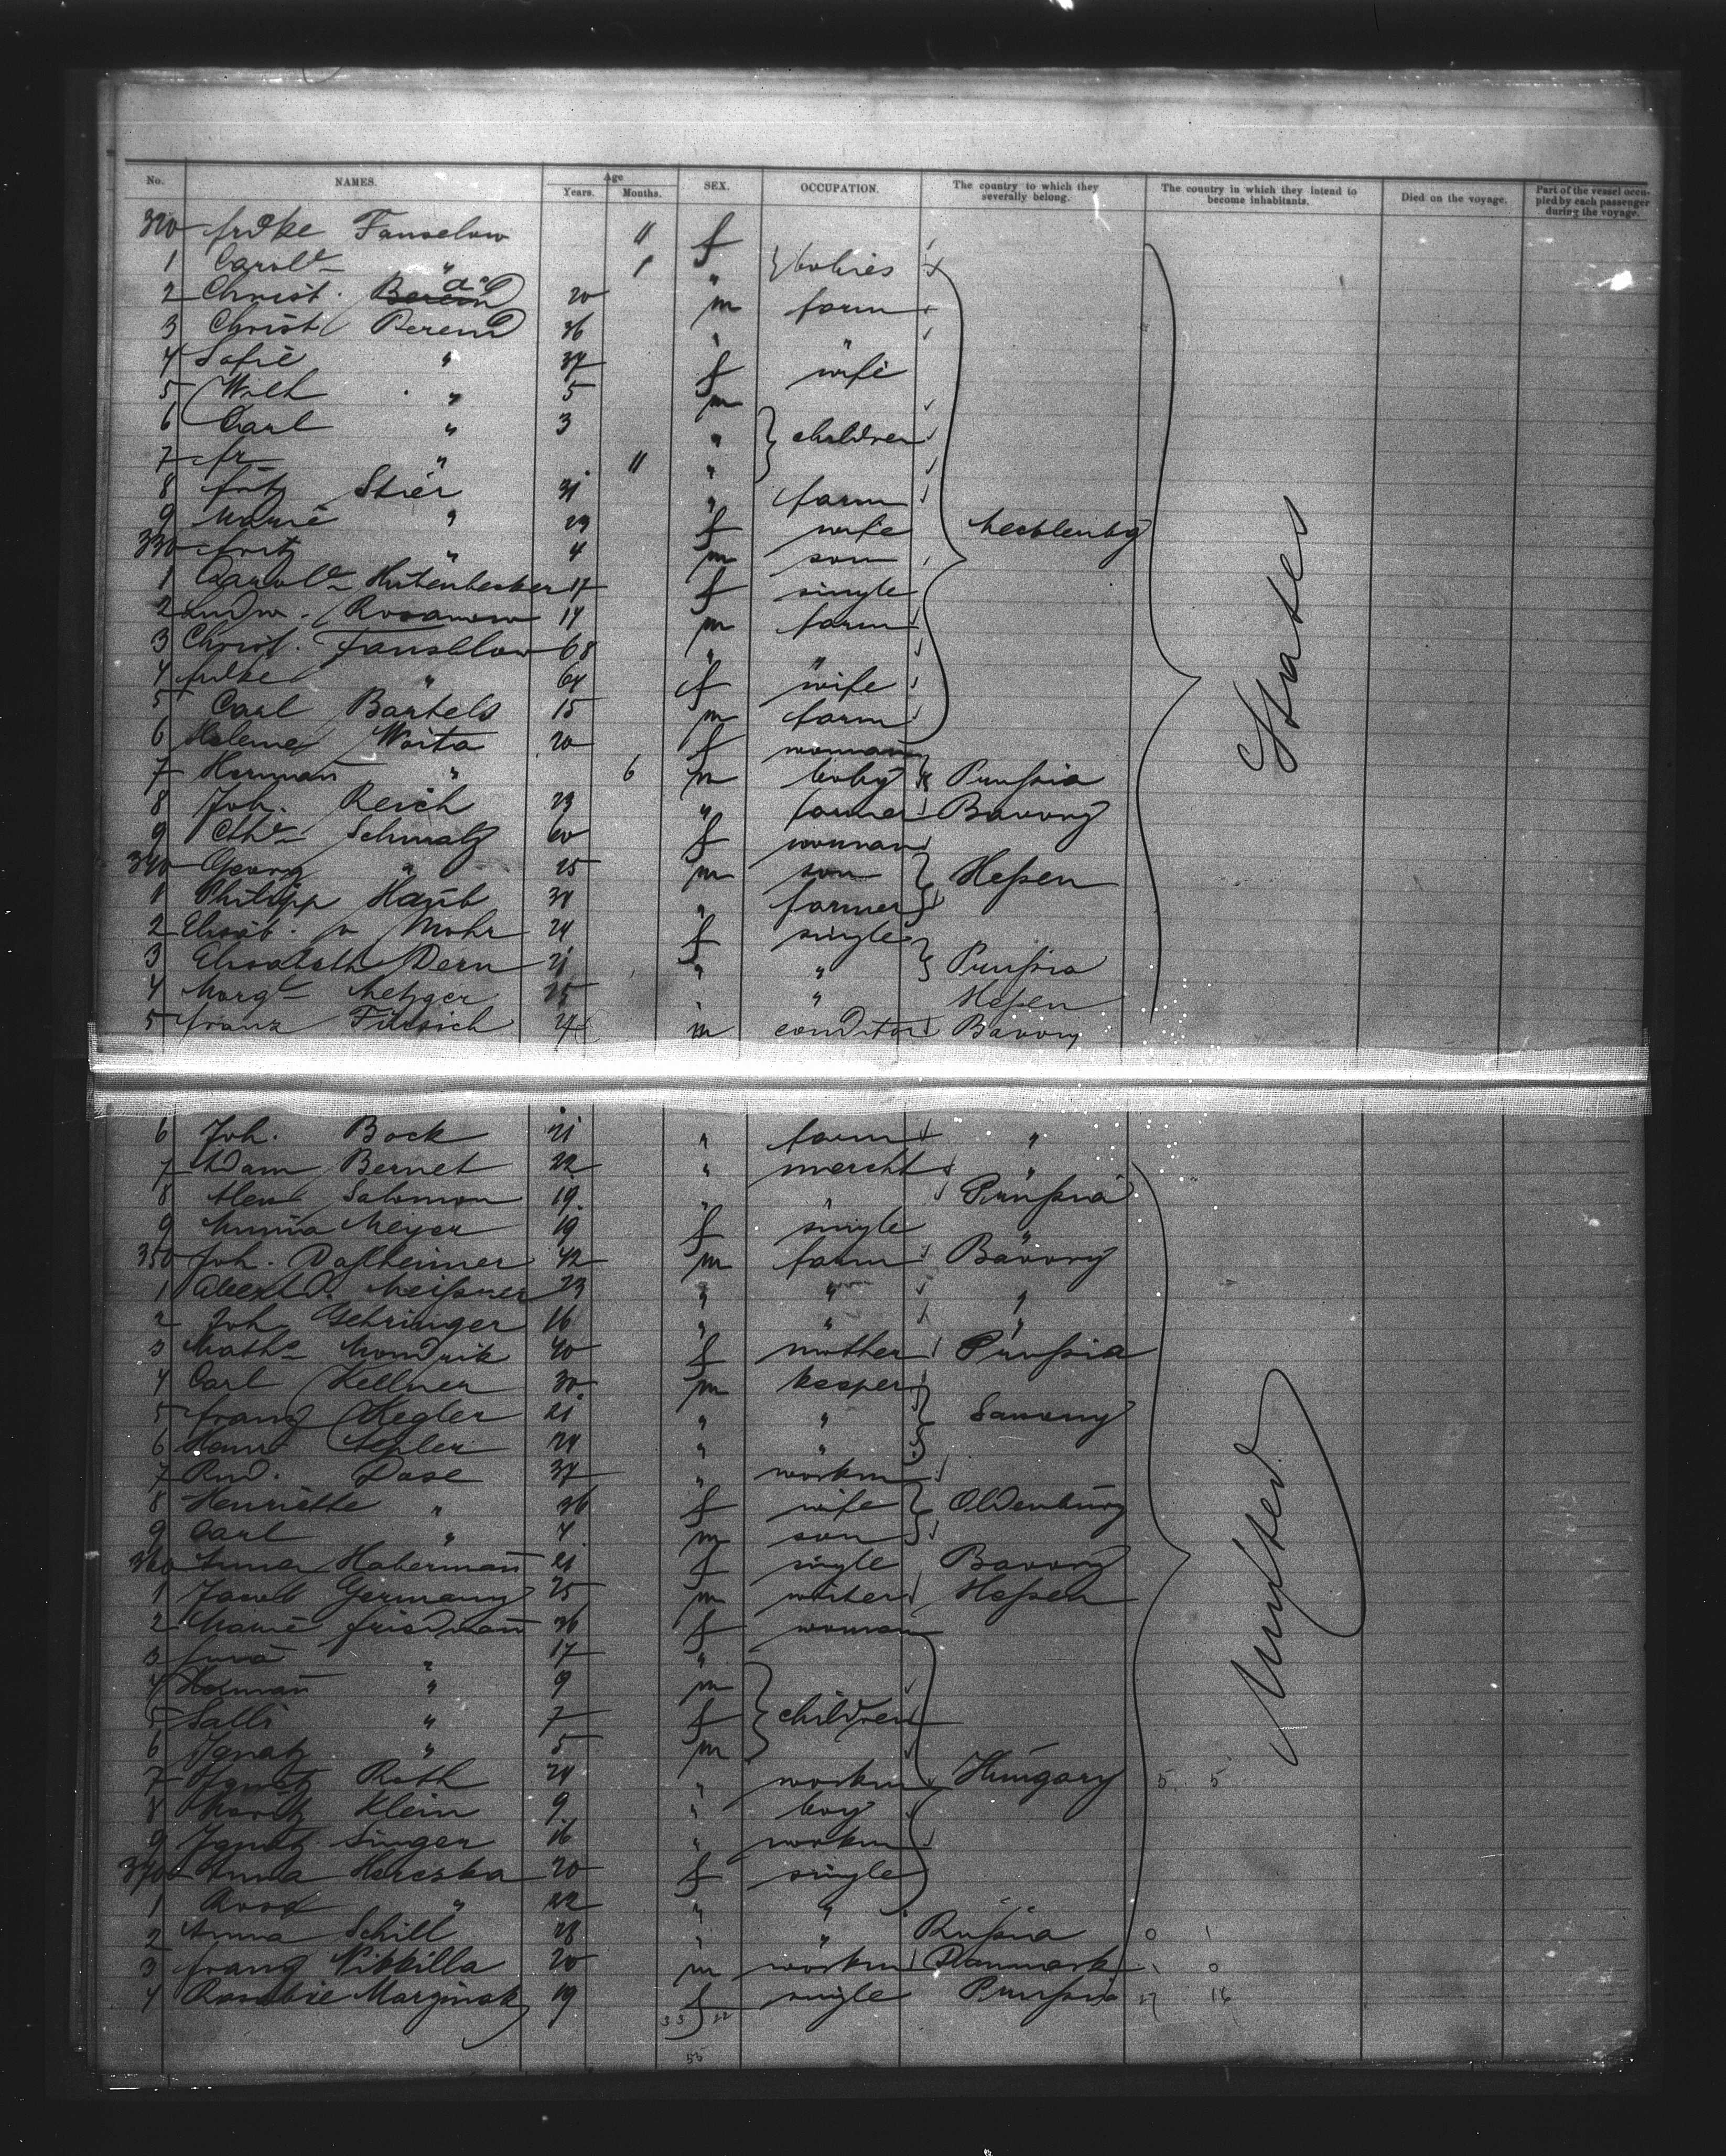 No. NAMES. Age Years. Months. SEX. OCCUPATION. The country to which they severally belong. The country in which they intend to become inhabitants. Died on the voyage. Part of the vessel occupied by each passenger during the voyage.
320 Fanselow 11 f
1 Carol~ " 1 " babies
2 Christ. 20 m farm
3 Christ Berend 36 " "
4 Sofie " 34 f wife
5 Wilh " 5 m
6 Carl " 3 " children
7 fr " 11 "
8 fritz Stier 31 " farm
9 Marie " 29 f wife Mecklenbg
330 fritz " 4 m son
1 Carol~ 17 f single
2 Ludw. Rosanow 14 m farm
3 Christ. Fansellow 68 " "
4 " 64 f wife
5 Carl Bartels 15 m farm
6 Helene Woita 20 f woman
7 Hermañ " 6 m baby Prussia
8 Joh. Reich 23 " farmer Bavory
9 Cth~ Schmalz 60 f woman
340 Georg " 25 m son Hessen
1 Philipp Haub 38 " farmer
2 Elisab. v Mohr 24 f single
3 Elisabeth Dern 21 " " Prussia
4 Marg~ Metzger 25 " Hessen
5 franz m conditor Bavory
6 Joh. Bock 21 " farm "
7 Adam Bernet 22 " mercht "
8 Alex Salomon 19 " " Prussia
9 Meyer 19 f single "
350 Joh. 42 m farm Bavory
1 Meissner 23 " " "
2 Joh Gehringer 16 " " "
3 Math~ Mondrik 40 f mother Prussia
4 Carl Kellner 30 m keeper
5 franz Kegler 21 " " Saxony
6 24 " "
7 Rud. Dase 37 " workm
8 Henriette " 36 f wife Oldenburg
9 Carl " 4 m son
360 Anna Habermañ 21 f single Bavory
1 Jacob Germany 25 m waiter Hessen
2 Marie friedmañ 36 f woman
3 " 17 "
4 Hermañ " 9 m
5 Salli " 7 f children
6 Ignatz " 5 m
7 Ignatz Roth 24 " workm Hungary 5 5
8 Moritz Klein 9 " boy
9 Ignatz Singer 16 " workm
370 Anna Hereska 20 f single
1 Rosa " 22 " "
2 Anna Schill 28 " " Russia 0 1
3 franz Nikkilla 20 m workm Danmark 1 0
4 Marzinak 19 f single Prussia 17 16
33 22
55
United States